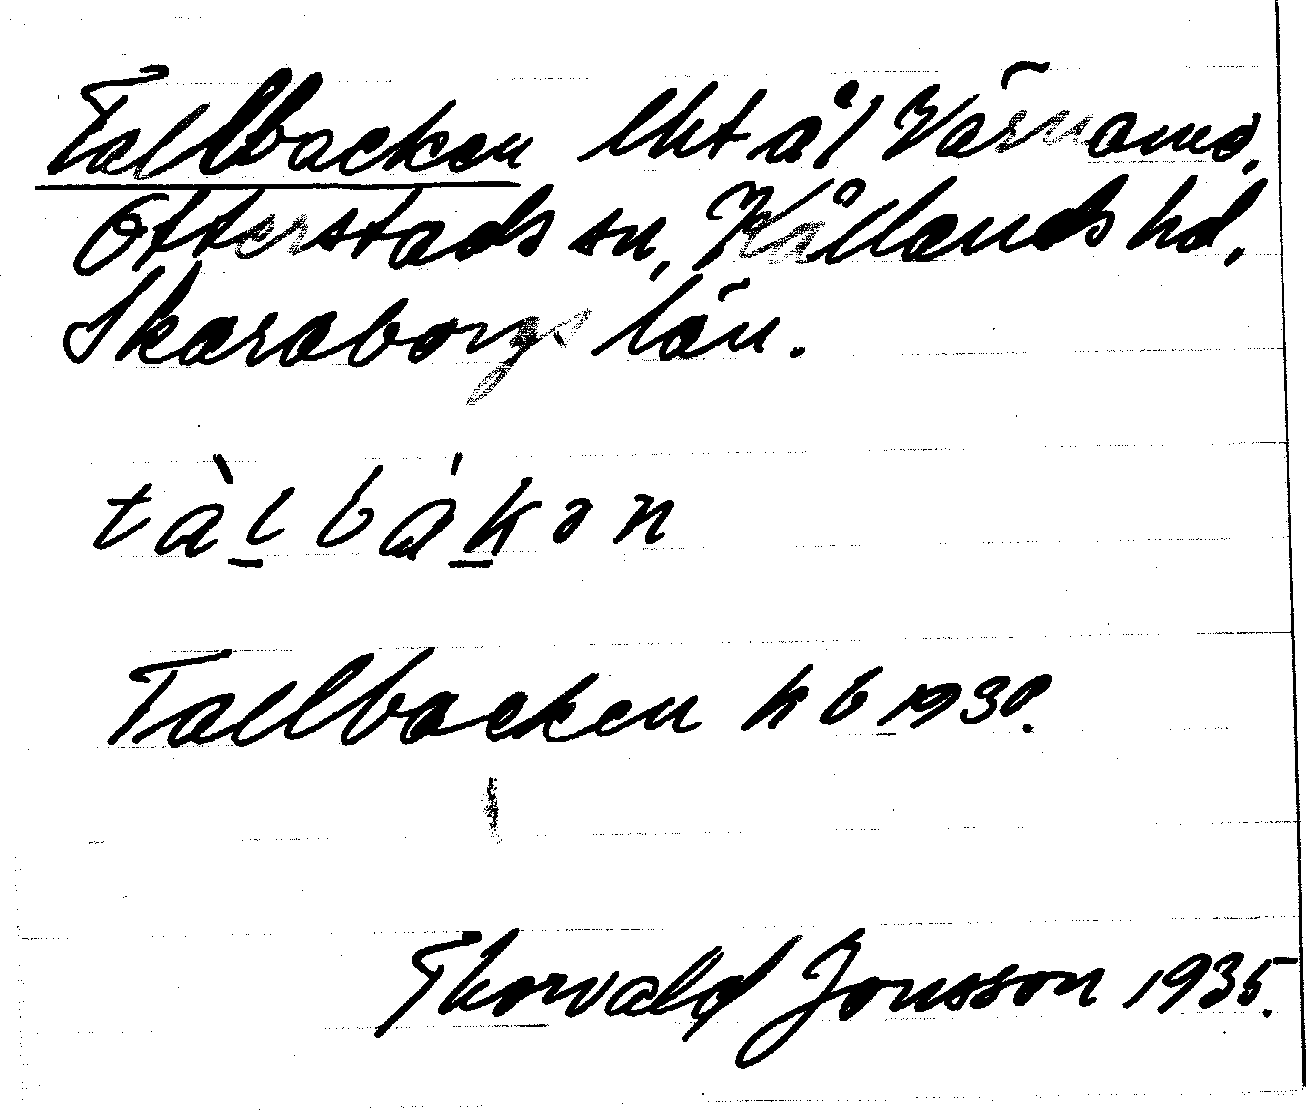 Tallbacken lht å/ Värnamo,
Otterstads sn, Kållands hd,
Skaraborgs län.
tàl̲bák̲ən
Tallbacken kb 1930.
Thorvald Jonsson 1935.